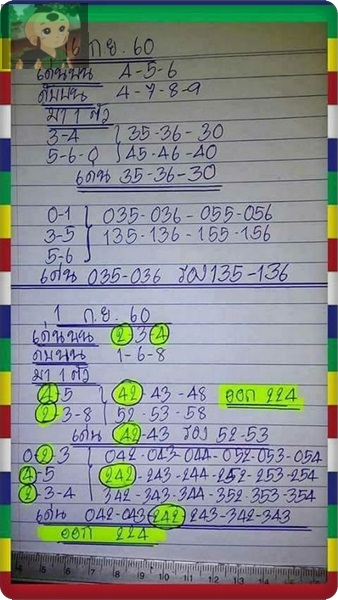 16 ก.ย. 60
เด่นบน 4-5-6
ดับบน 4-7-8-9
มา 1 ตัว
3-4 } 35-36-30
5-6-0 } 45-46-40
เด่น 35-36-30
0-1 } 035-036-055-056
3-5 } 135-136-155-156
5-6
เด่น 035-036 รอง 135-136
1 ก.ย. 60
เด่นบน 2-3-4
ดับบน 1-6-8
มา 1 ตัว
4-5 } 42-43-48 ออก 224
2-3-8 } 52-53-58
เด่น 42-43 รอง 52-53
0-2-3 } 042-043-044-052-053-054
4-5 } 242-243-244-252-253-254
2-3-4 } 342-343-344-352-353-354
เด่น 042-043-242-243-342-343
ออก 224
4 5 6 7 8 9 10 11 12 13 14 15